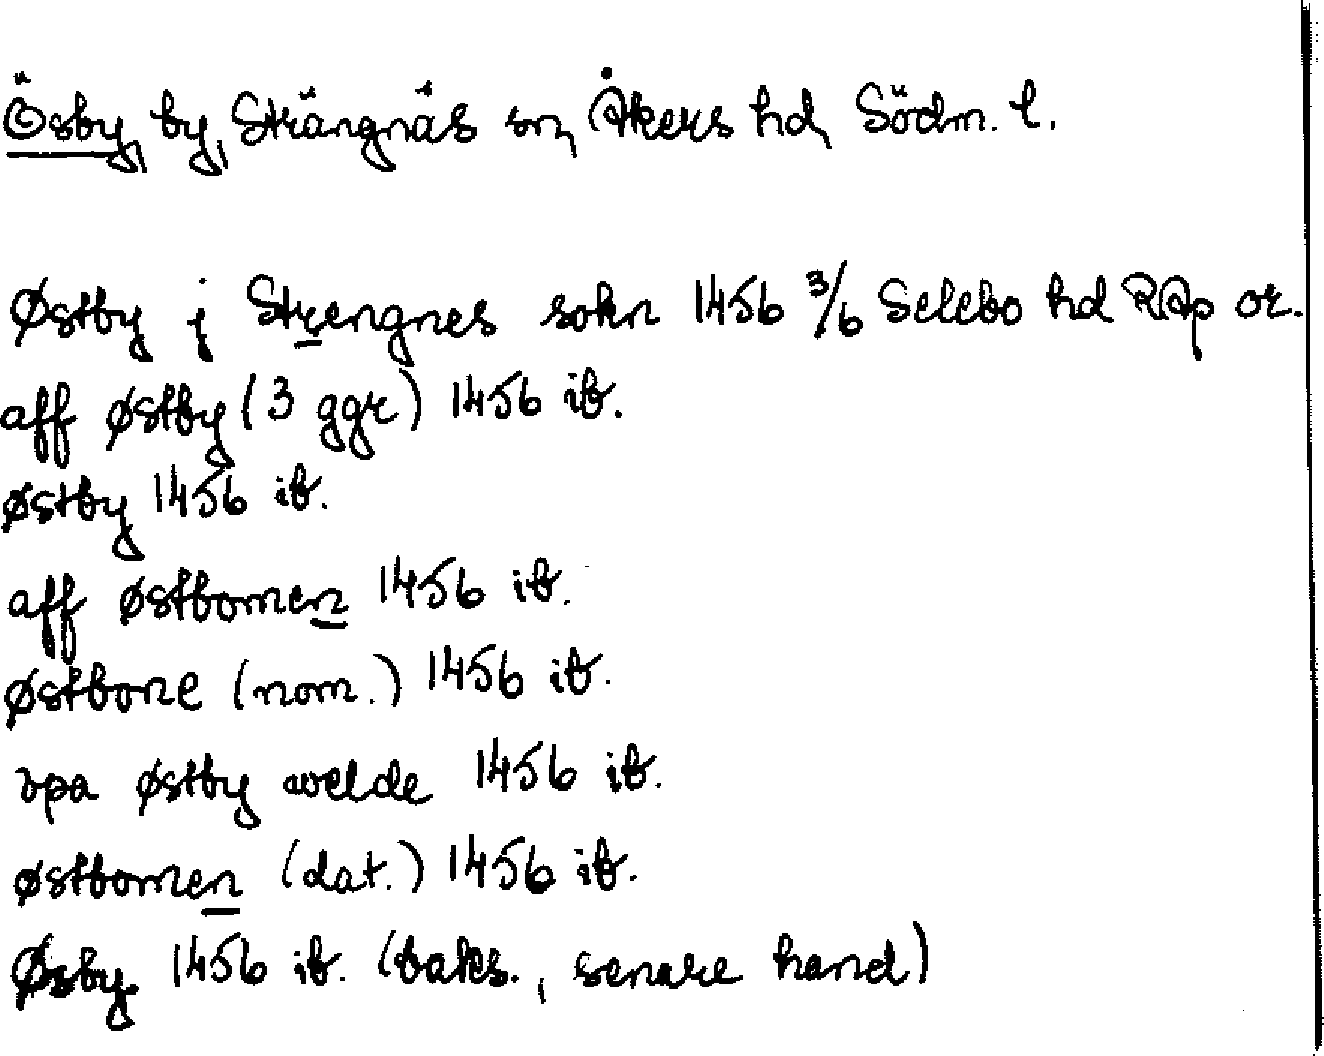 Ösby, by, Strängnäs sn, Åkers hd, Södm. l.
Østby j Strengnes sokn 1456 3/6 Selebo hd RAp or.
aff østby (3 ggr) 1456 ib.
østby 1456 ib.
aff østbomen 1456 ib.
østbone (nom.) 1456 ib.
vpa østby welde 1456 ib.
østbomen (dat.) 1456 ib.
Øsby 1456 ib. (baks., senare hand)